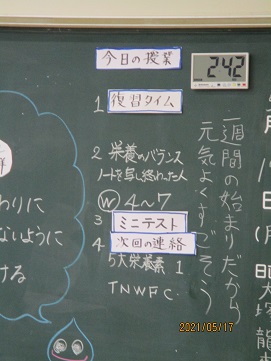 今日の授業
242
1 復習タイム
2 栄養のバランス
ノートを写し終わった人
Ⓦ 4～7
3 ミニテスト
4 次回の連絡
5大栄養素 1
TNWFC.
一週間の始まりだから
元気よくすごそう
群
わりに
ないように
ける
月
2021/05/17